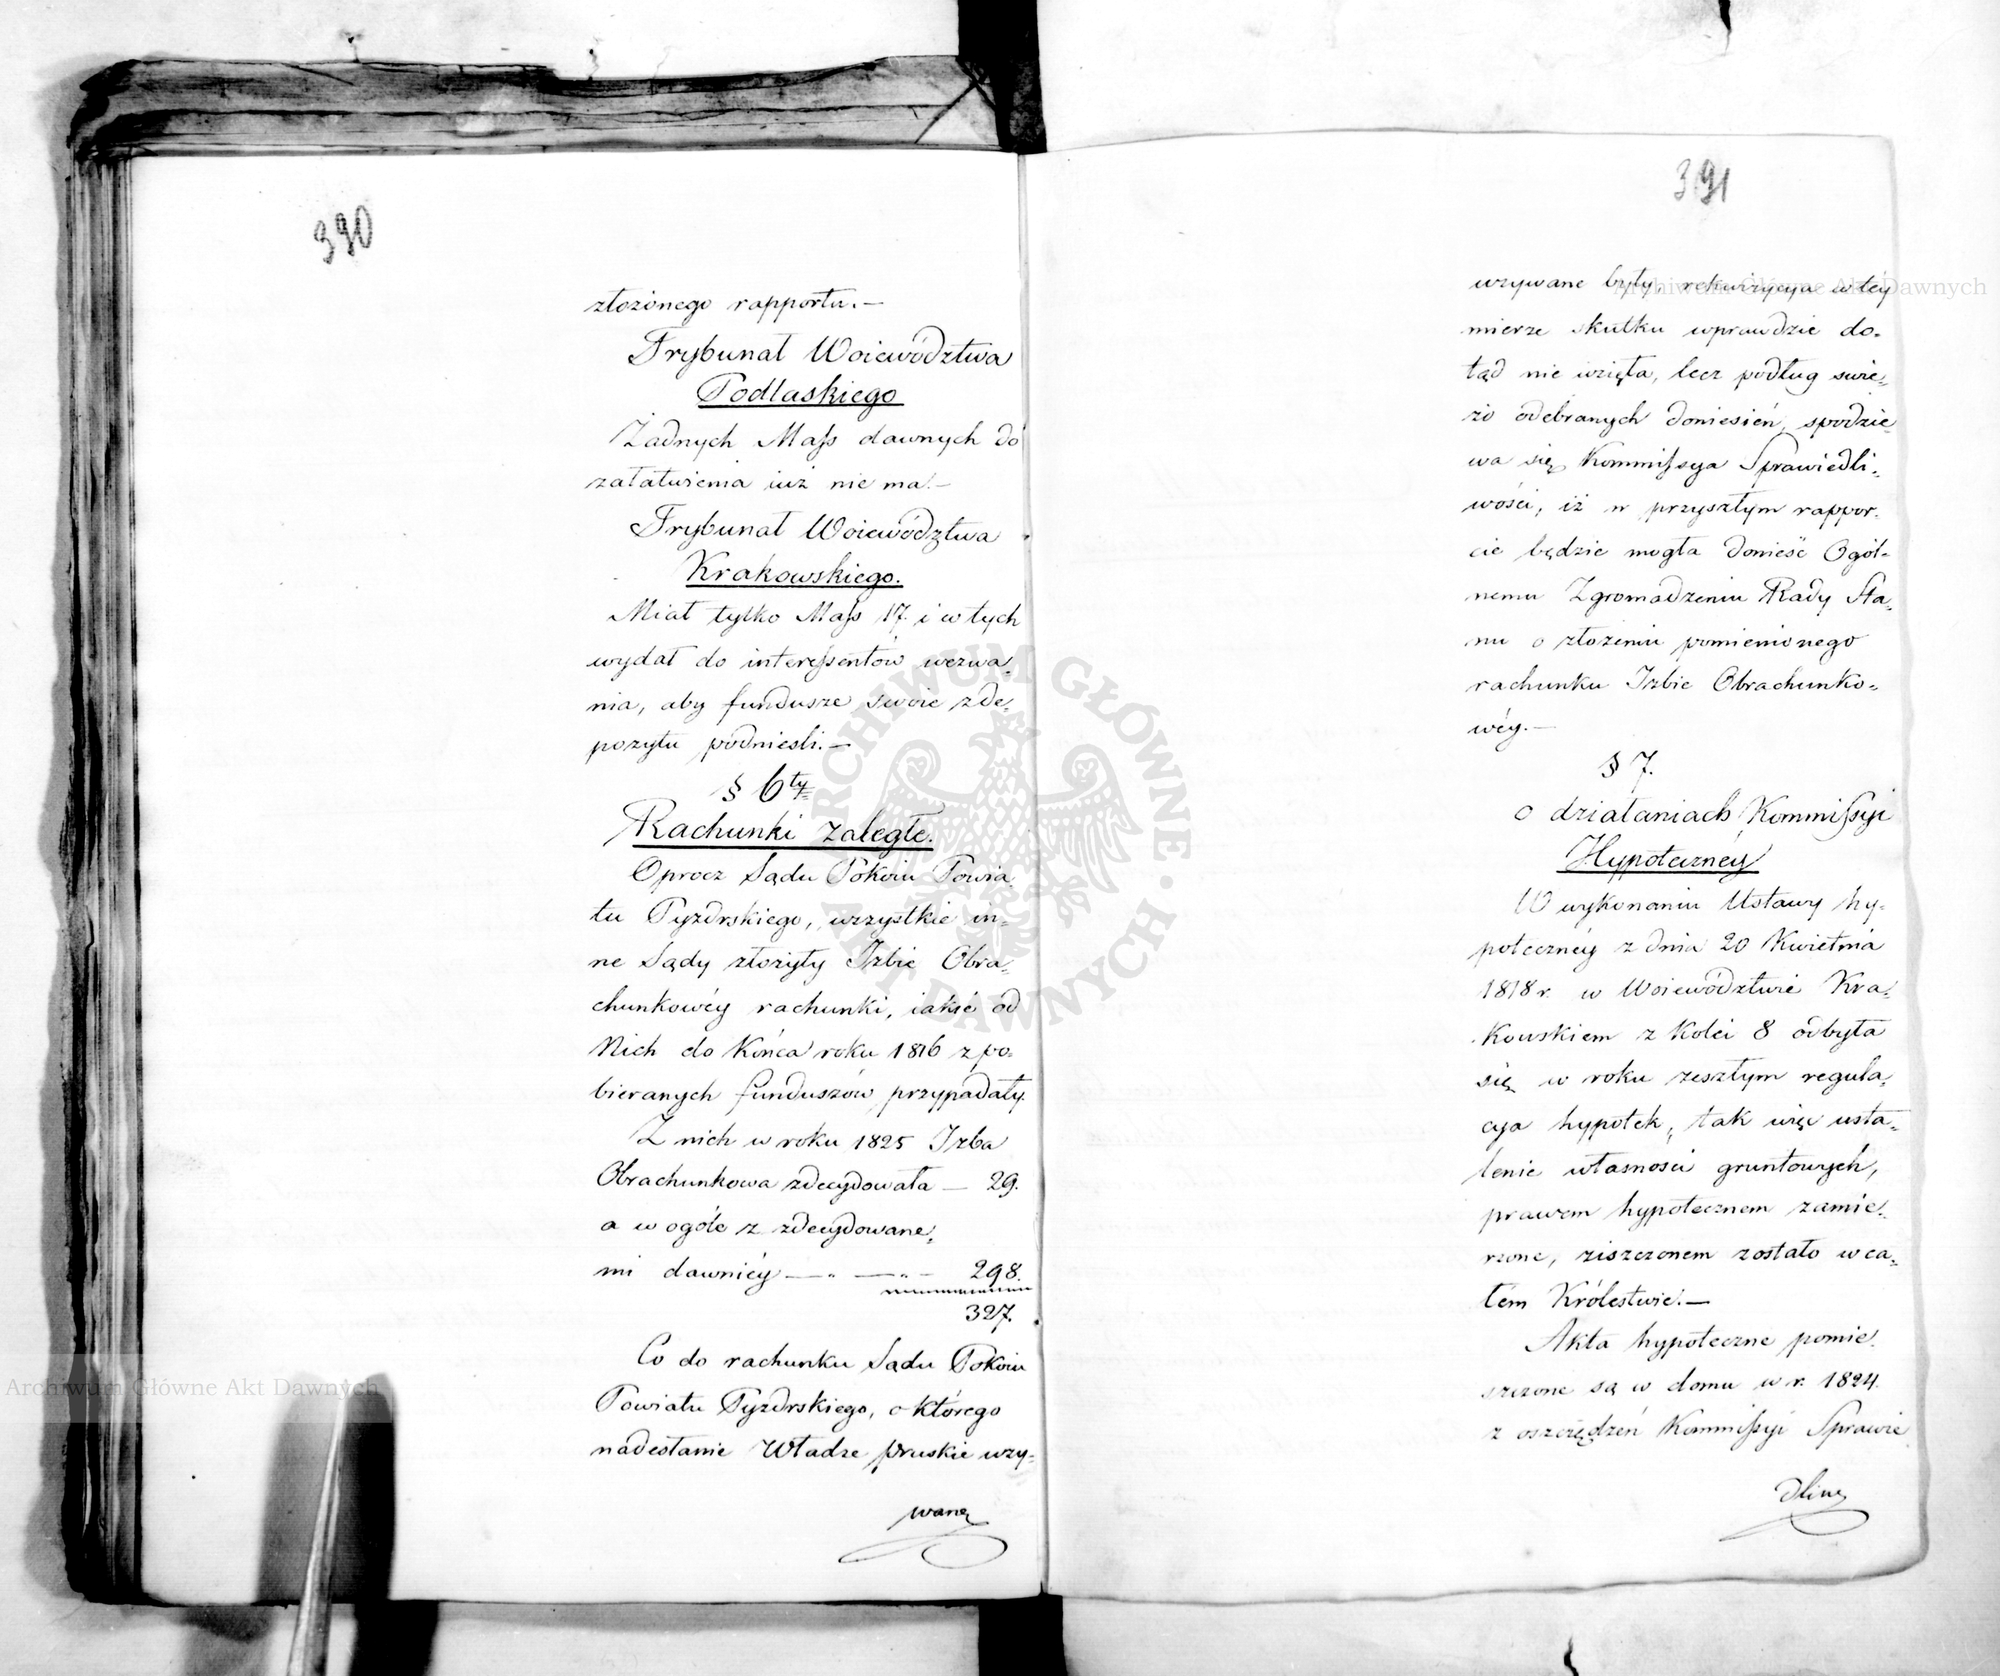 390
złożonego rapportu.—
Trybunał Woiewództwa
Podlaskiego
Żadnych Mass dawnych do
załatwienia iuż nie ma.—
Trybunał Woiewództwa
Krakowskiego.
Miał tylko Mass 17. i w tych
wydał do interessentów wezwa„
nia, aby fundusze swoie z de„
pozytu podniesli.—
§ 6ty
Rachunki zaległe.
Oprocz Sądu Pokoiu Powia„
tu Pyzdrskiego, wszystkie in„
ne Sądy złożyły Izbie Obra„
chunkowéy rachunki, iakie od
Nich do Końca roku 1816 z po„
bieranych funduszów przypadały.
Z nich w roku 1825 Izba
Obrachunkowa zdecydowała — 29.
a w ogóle z zdecydowane„
mi dawniéy — „ — „ — 298.
327.
Co do rachunku Sądu Pokoiu
Powiatu Pyzdrskiego, o którego
nadesłanie Władze pruskie wzy„
wane
391
wzywane były, rekwizycya w téy
mierze skutku wprawdzie do„
tąd nie wzięła, lecz podług świe„
żo odebranych doniesień, spodzie„
wa się Kommissya Sprawiedli„
wości, iż w przyszłym rappor„
cie będzie mogła donieść Ogól„
nemu Zgromadzeniu Rady Sta„
nu o złożeniu pomienionego
rachunku Izbie Obrachunko„
wéy.—
§ 7.
o działaniach Kommissyi
Hypotecznéy
W wykonaniu Ustawy hy„
potecznéy z dnia 20 Kwietnia
1818 r. w Woiewództwie Kra„
kowskiem z kolei 8 odbyła
się w roku zeszłym regula„
cya hypotek, tak więc usta„
lenie własności gruntowych,
prawem hypotecznem zamie„
rzone, ziszczonem zostało w ca„
łém Królestwie.—
Akta hypoteczne pomie„
szczone są w domu w r. 1824.
z oszczędzeń Kommissyi Sprawie
dliwo
Archiwum Główne Akt Dawnych
Archiwum Główne Akt Dawnych
ARCHIWUM GŁÓWNE • AKT DAWNYCH •